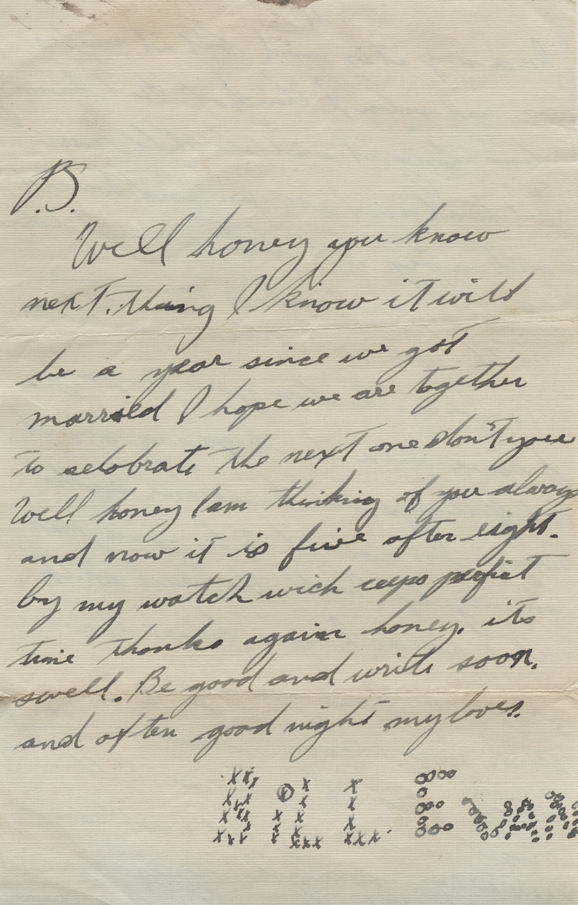 P.S.
Well honey you know
next. thing I know it will
be a year since we got
married I hope we are together
to selobrate the next one don't you
Well honey I am thinking of you always
and now it is five after eight.
by my watch wich ceeps perfict
time thanks again honey. its
swell. Be good and write soon.
and often good night my love.